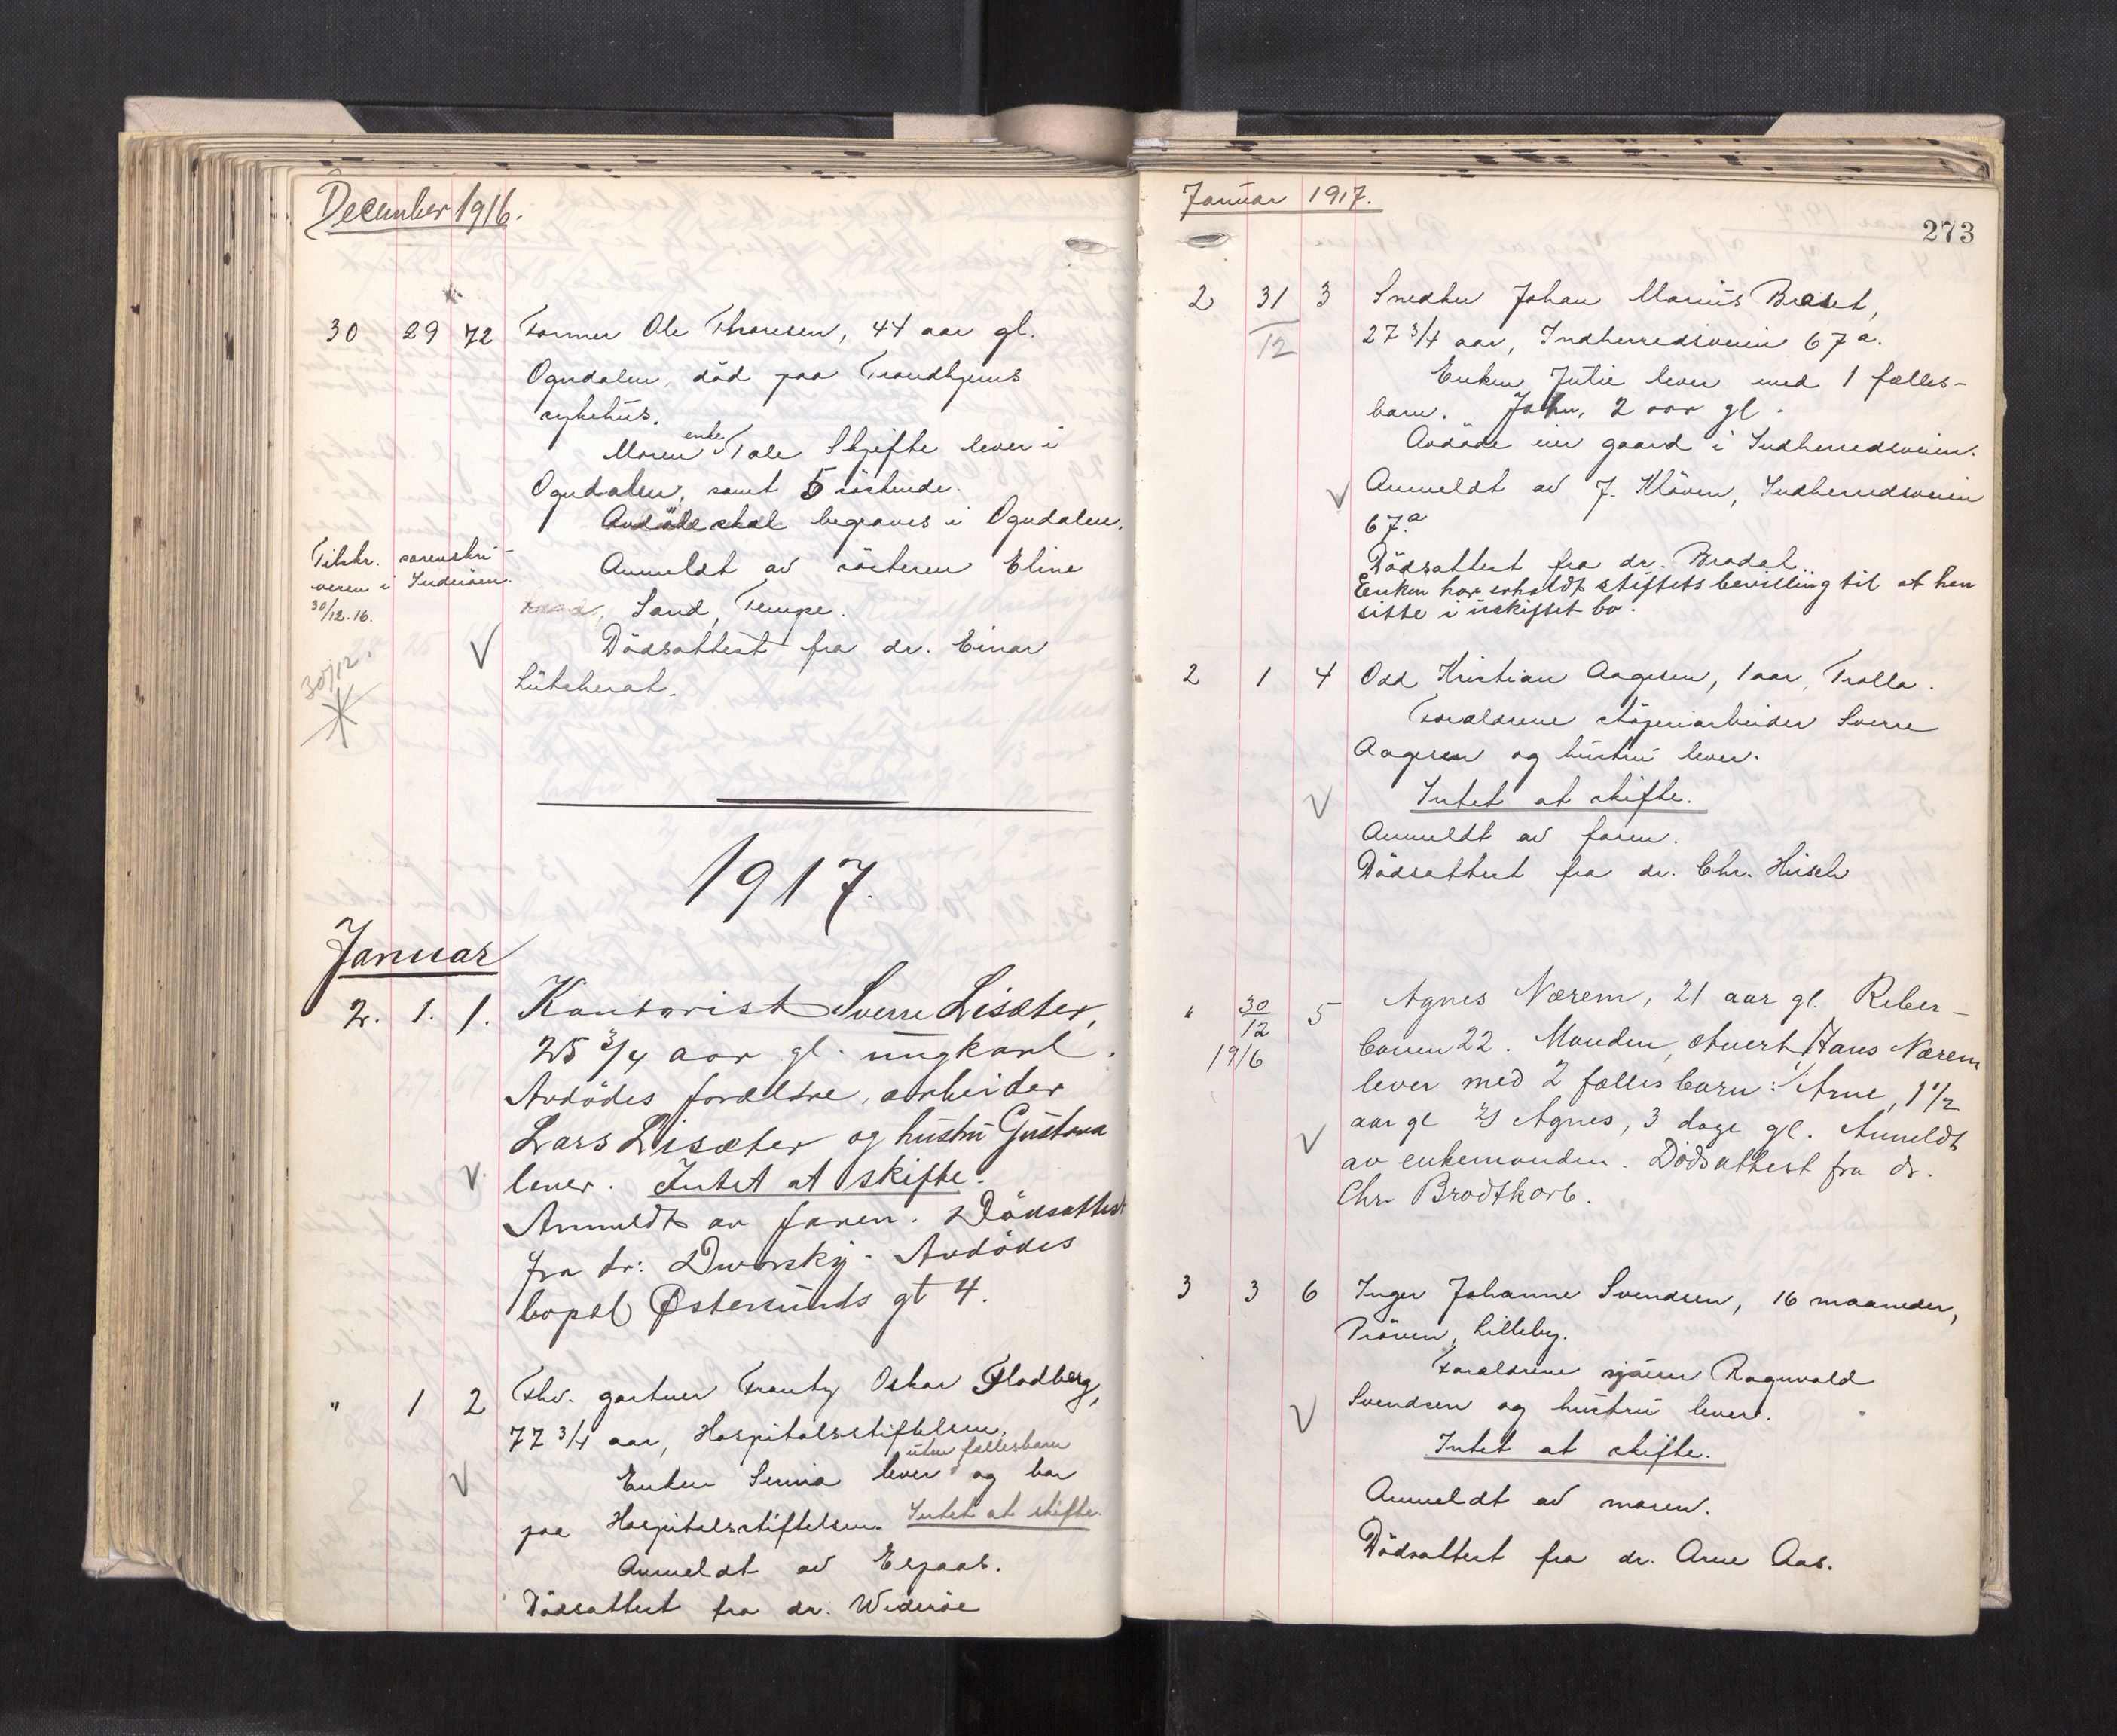 December 1916.
30 29 72 Former Ole Thoresen, 44 aar gl.
Ogndalen, død paa Trondhjems
sykehus.
Moren enke Tale Skjefte lever i
Ogndalen, samt 5 søskende.
Avdøde skal begraves i Ogndalen.
Tilskr. sorenskri-
veren i Inderøen.
30/12.16.
Anmeldt av søsteren Eline
Sand, Tempe.
Dødsattest fra dr. Einar
Lütcherat.
30/12.
1917.
Januar
2. 1. 1. Kontorist Sverre Lisæter,
25 3/4 aar gl. ungkarl.
Avdødes forældre, arbeider
Lars Lisæter og hustru Gustava
lever. Intet at skifte.
Anmeldt av faren. Dödsattest
fra dr: Dworsky. Avdødes
bopæl Østersunds gt 4.
" 1 2 Fhv. gartner Frantz Oskar Flodberg,
77 3/4 aar, Hospitalsstiftelsen.
uten fællesbarn
Enken lever og bor
paa Hospitalsstiftelsen. Intet at skifte.
Anmeldt av Espaas.
Dødsattest fra dr. Widerøe
Januar 1917.
273
2 31/12 3 Snedker Johan Marius Braset,
27 3/4 aar, Indherredsveien 67 a.
Enken Julie lever med 1 fælles-
barn. John, 2 aar gl.
Avdøde eier gaard i Indherredsveien.
Anmeldt av J. Kløven, Indherredsveien
67.a
Dødsattest fra dr. Bradal.
Enken har erholdt stiftets bevilling til at hen
sitte i uskiftet bo.
2 1 4 Odd Kristian Aagesen, 1 aar, Trolla.
Forældrene støperiarbeider Sverre
Aagesen og hustru lever.
Intet at skifte.
Anmeldt av faren.
Dødsattest fra dr. Chr. Hirsch
" 30/12 1916 5 Agnes Nærem, 21 aar gl. Ribes-
barven 22. Manden, stuert Hans Nærem
lever med 2 fælles barn: 1/ Arne, 1 1/2
aar gl 2/ Agnes, 3 dage gl. Anmeldt
av enkemanden. Dødsattest fra dr.
Chr. Brodtkorb.
3 3 6 Inger Johanne Svendsen, 16 maaneder,
Prøven, Lilleby.
Forældrene sjauer Ragnvald
Svendsen og hustru lever.
Intet at skifte.
Anmeldt av moren.
Dødsattest fra dr. Arne Aas.